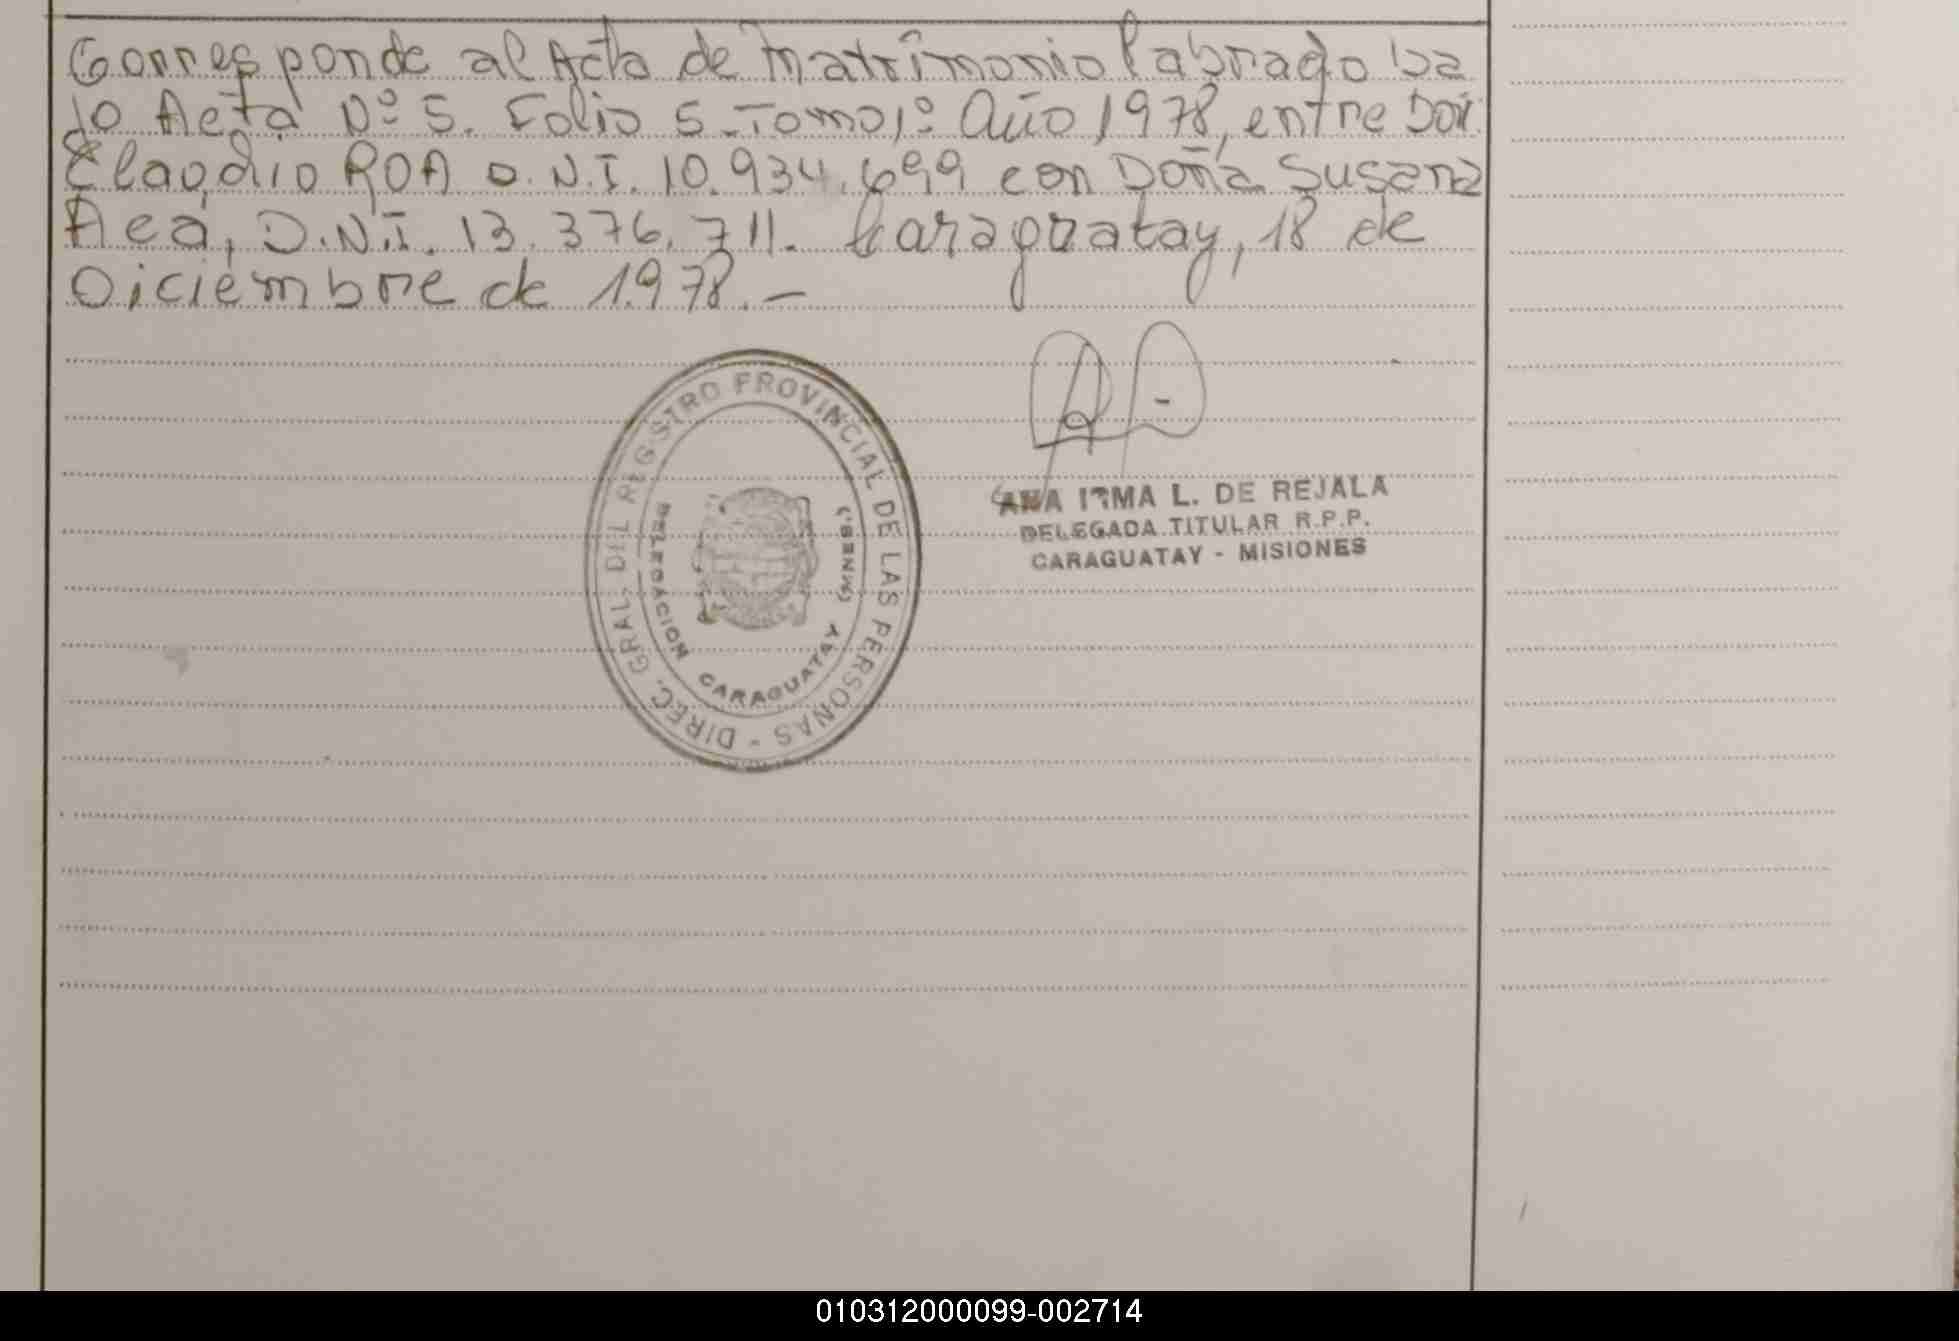 Corresponde al Acta de matrimonio labrado ba
jo Acta Nº 5. Folio 5. Tomo 1º Año 1978, entre Don
Claudio ROA D.N.I. 10.934.699 con Doña Susana
Aca, D.N.I. 13.376.711. Caraguatay, 18 de
Diciembre de 1.978.-
DIREC. GRAL. DEL REGISTRO PROVINCIAL DE LAS PERSONAS -
DELEGACION CARAGUATAY (MNES.)
ANA IRMA L. DE REJALA
DELEGADA TITULAR R.P.P.
CARAGUATAY - MISIONES
010312000099-002714